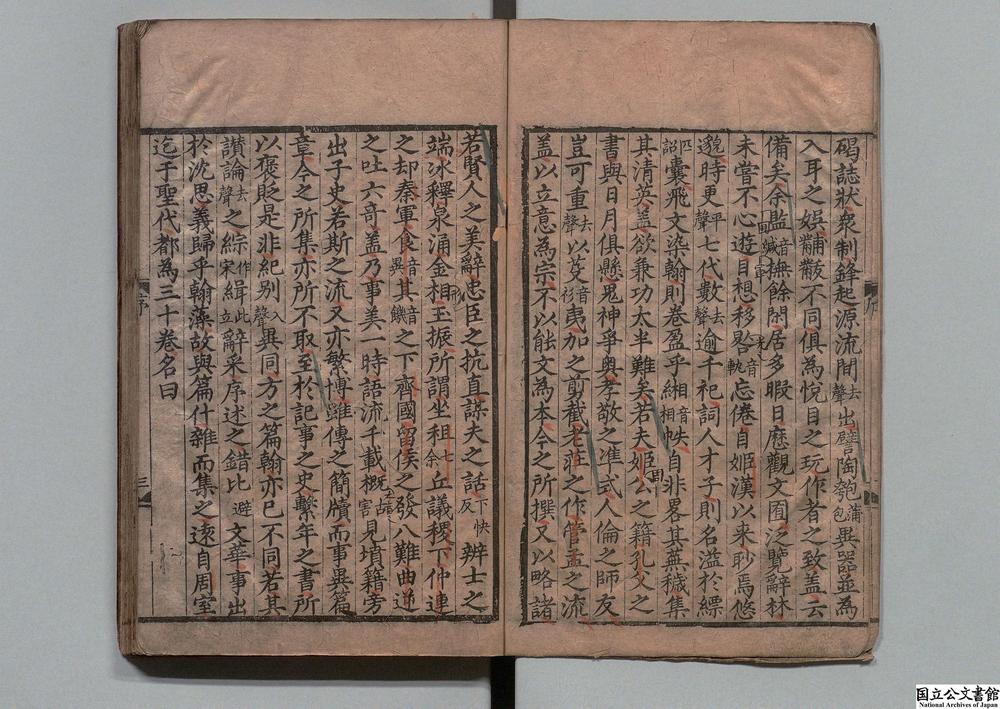 碣誌狀衆制鋒起源流間去聲出譬陶匏蒲包異器並為
入耳之娛黼黻不同俱為悅目之玩作者之致蓋云
備矣余監音緘撫餘閑居多暇日歷觀文囿泛覽辭林
未嘗不心遊目想移晷音軌忘倦自姬漢以來眇焉悠
邈時更平聲七代數去聲逾千祀詞人才子則名溢於縹
匹詔囊飛文染翰則卷盈乎緗音相帙自非畧其蕪穢集
其清英蓋欲兼功太半難矣若夫姬公之籍孔父之
書與日月俱懸鬼神爭奧孝敬之准式人倫之師友
豈可重去聲以芟音衫夷加之剪截老莊之作管孟之流
蓋以立意為宗不以能文為本今之所撰又以略諸
若賢人之美辭忠臣之抗直謀夫之話下快反辨士之
端冰釋泉涌金相玉振所謂坐狙七余丘議稷下仲連
之却秦軍食音異其音饑之下齊國留侯之發八難曲逆
之吐六奇蓋乃事美一時語流千載概古害見墳籍旁
出子史若斯之流又亦繁博雖傳之簡牘而事異篇
章今之所集亦所不取至於記事之史繫年之書所
以褒貶是非紀別入聲異同方之篇翰亦已不同若其
讃論去聲之綜作宋緝此立辭采序述之錯比避文華事出
於沈思義歸乎翰藻故與篇什雜而集之遠自周室
迄于聖代都為三十卷名曰
序
三
国立公文書館
National Archives of Japan